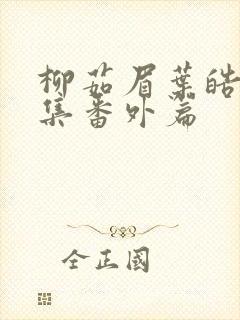 柳茹眉葉皓
集番外篇
全正國